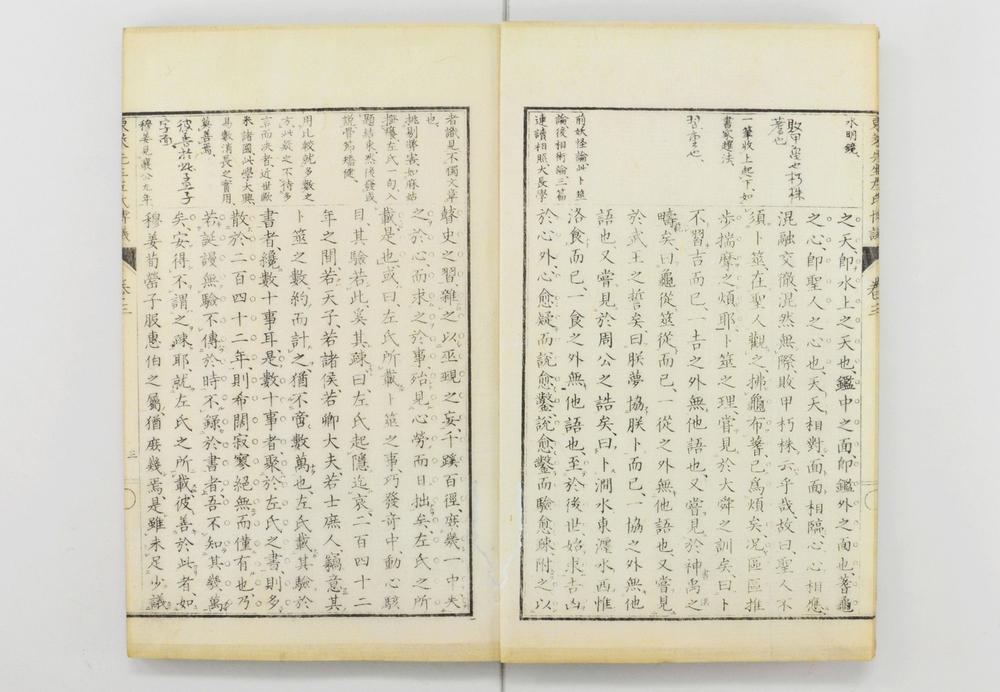 水明鏡、
敗甲龜也朽株
蓍也
一筆收上起下、如
書家趯法、
習重也、
前妖怪論此卜筮
論後相術論三篇
連讀相照大長學
之天、即水上之天也、鑑中之面、即鑑外之面也、蓍龜
之心、即聖人之心也、天天相對、面面相臨、心心相應、
混融交徹、混然無際、敗甲朽株云乎哉、故曰、聖人不
須卜筮、在聖人觀之、拂龜布蓍、已爲煩矣、况區區推
步揣摩之煩耶、卜筮之理、嘗見於大舜之訓矣、曰、卜
不習吉而已、一吉之外、無他語也、又嘗見於神禹之
疇矣、曰龜從、筮從而已、一從之外、無他語也、又嘗見
於武王之誓矣、曰朕夢協朕卜而已、一協之外、無他
語也、又嘗見於周公之誥矣、曰、卜澗水東瀍水西、惟
洛食而已、一食之外、無他語也、至於後世、始求吉凶
於心外、心愈疑而說愈鑿、說愈鑿而驗愈疎、附之以
卷三
者識見不獨文章
也、
挑剔髒案如麻姑
擦癢左氏一句入
題結束然後發戒
說骨節珊健、
用比較就多數之
方、此疑之不待多
言而决者、近世歐
米諸國此學大興
其數消長之實用、
莫善焉、
彼善於此孟子
字面
穆姜見襄公九年
瞽史之習、雜之以巫覡之妄、千蹊百徑、庶幾一中、失
之於心、而求之於事、殆見心勞而日拙矣、左氏之所
載、是也、或曰、左氏所載卜筮之事、巧發奇中、動心駭
目、其驗若此、奚其疎、曰左氏起隱迄哀、二百四十二
年之間、若天子、若諸侯、若卿大夫、若士庶人、竊意其
卜筮之數、約而計之、猶不啻數萬也、左氏載其驗於
書者、纔數十事耳、是數十事者、聚於左氏之書則多、
散於二百四十二年、則希闊寂寥、絕無而僅有也、乃
若誕謾無驗、不傳於時、不錄於書者、吾不知其幾萬
矣、安得不謂之疎耶、就左氏之所載、彼善於此者、如
穆姜荀罃子服惠伯之屬、猶庶幾焉、是雖未足少議
三